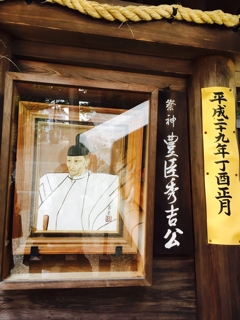 平成二十九年丁酉正月
祭神 豊臣秀吉公